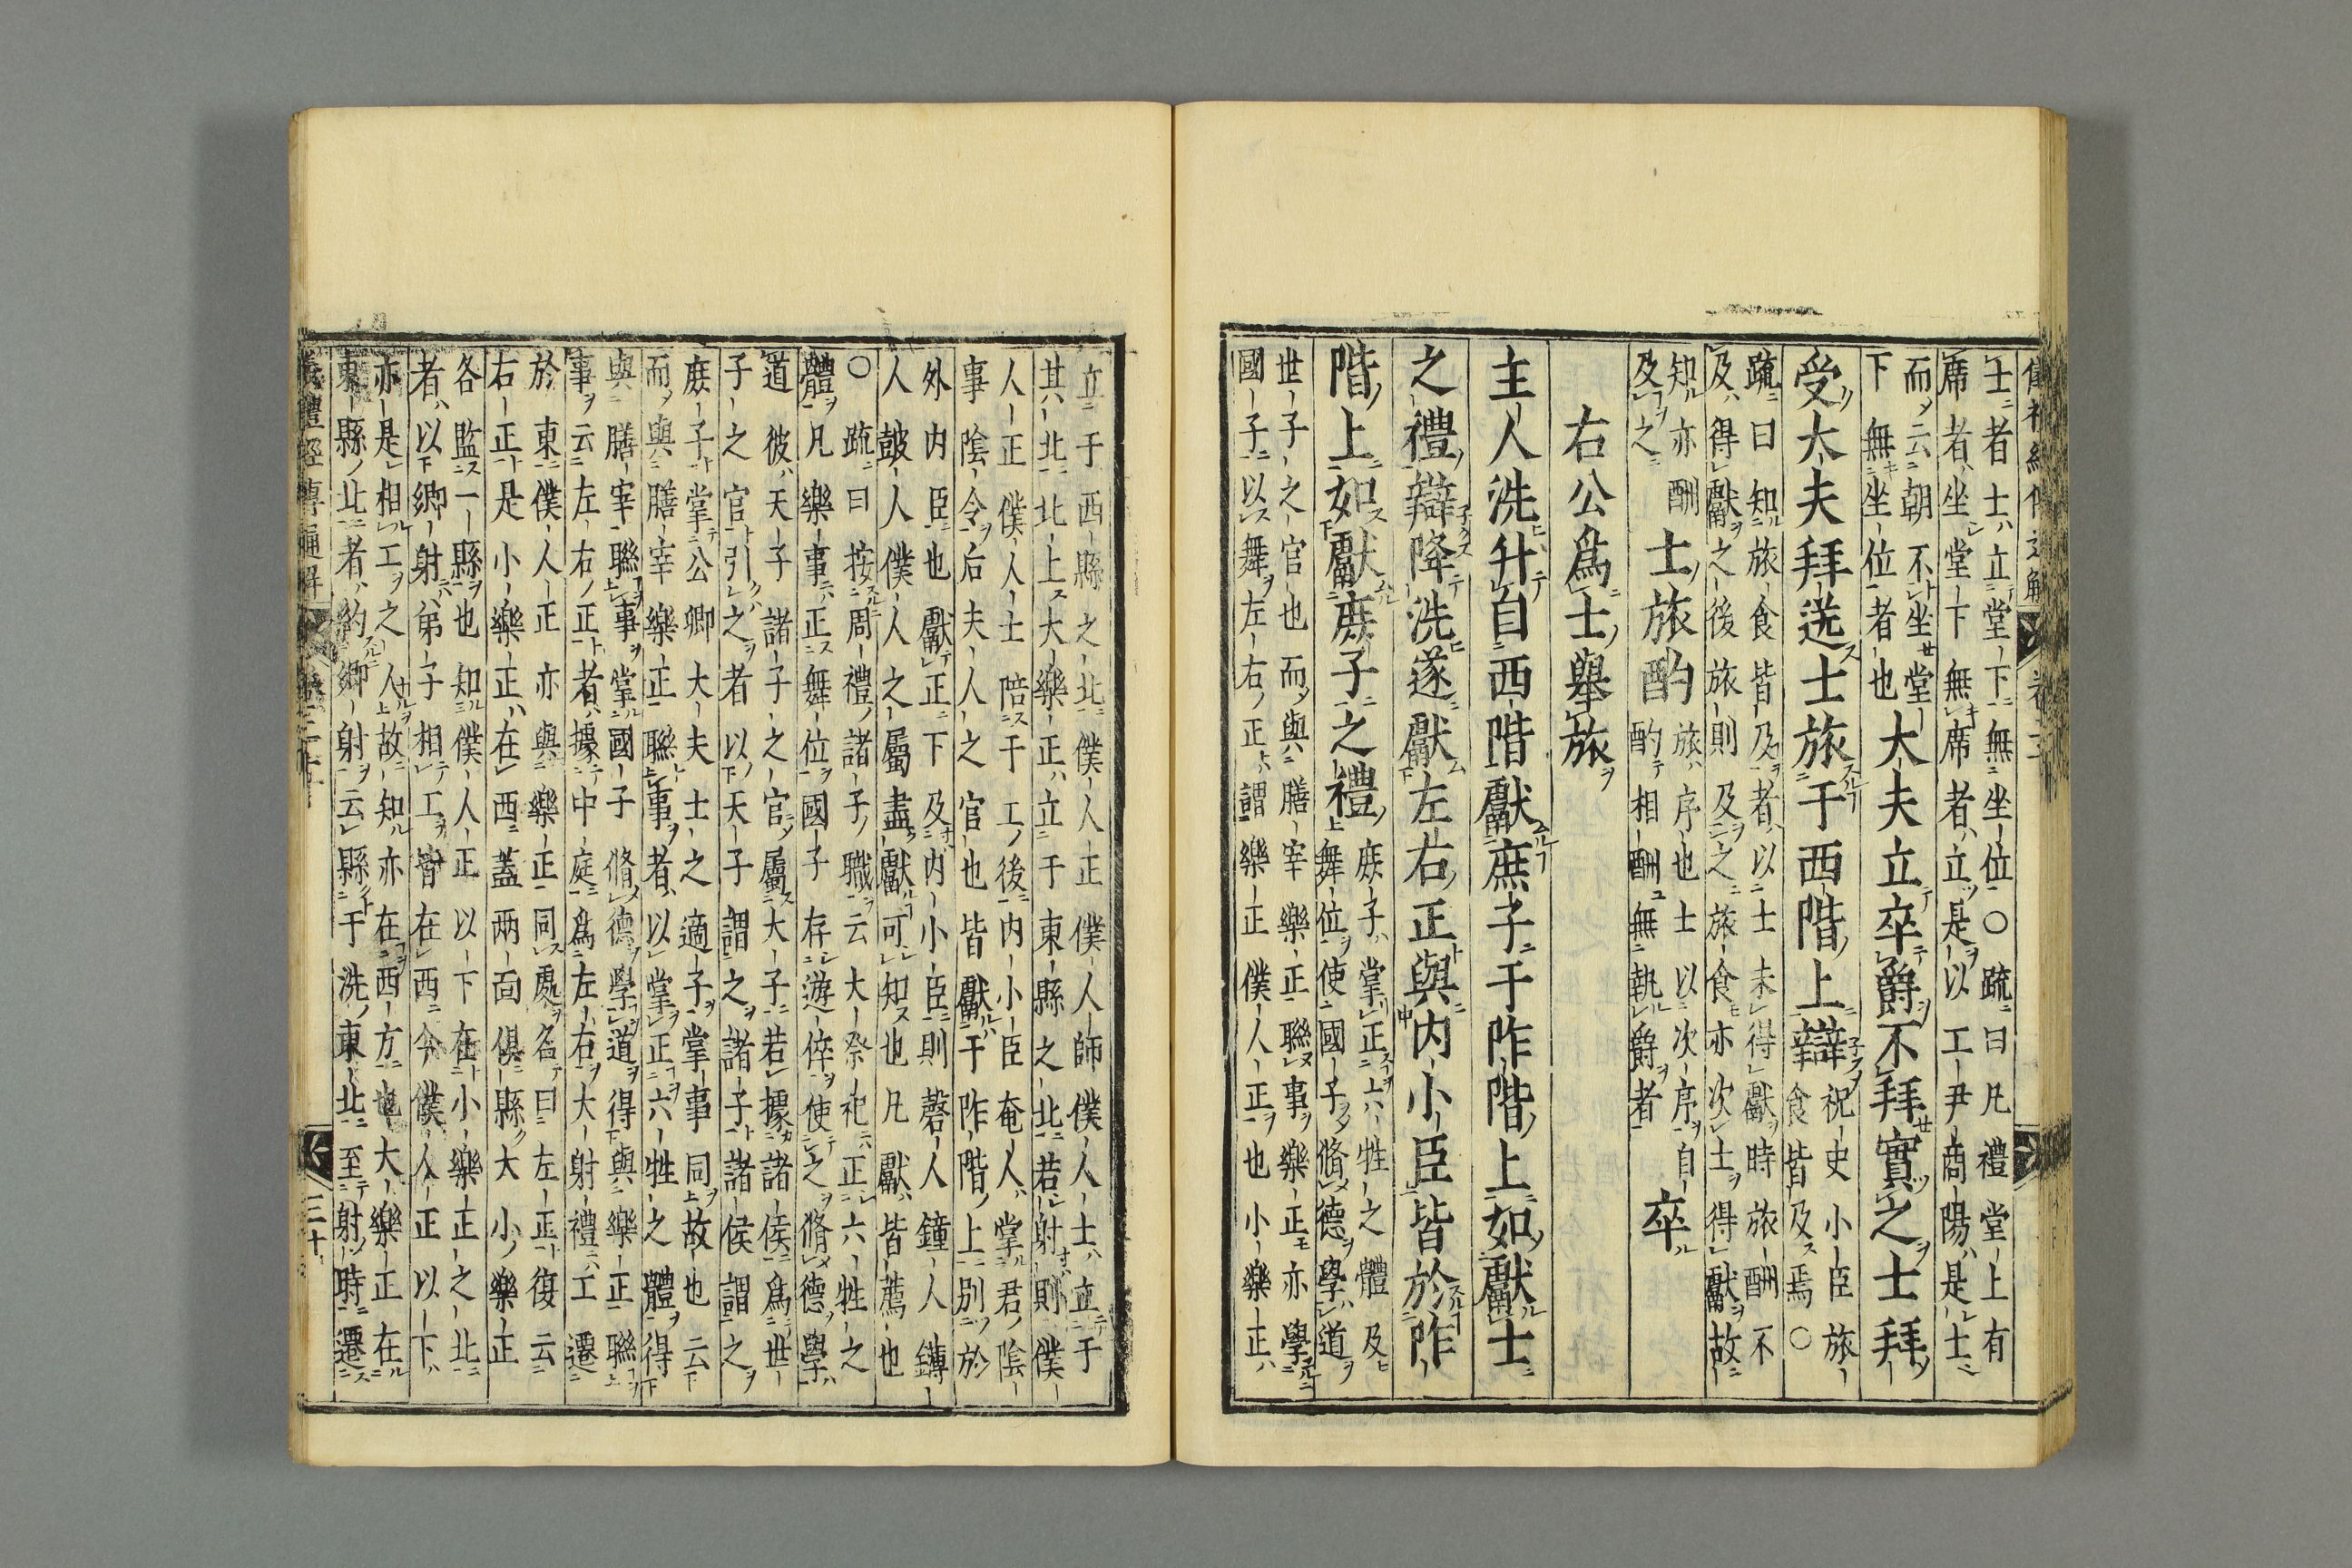 士者士立堂下無坐位○疏曰凡禮堂上有
席者坐堂下無席者立是以工尹商陽是士
而云朝不坐堂
下無坐位者也
大夫立卒爵不拜實之士拜
受大夫拜送士旅于西階上辯
祝史小臣旅
食皆及焉○
疏曰知旅食皆及者以士未得獻時旅酬不
及得獻之後旅則及之旅食亦次士得獻故
知亦酬
及之
士旅酌
旅序也士以次序自
酌相酬無執爵者
卒
右公爲士舉旅
主人洗升自西階獻庶子于阼階上如獻士
之禮辯降洗遂獻左右正與內小臣皆於阼
階上如獻庶子之禮
庶子掌正六牲之體及
舞位使國子脩德學道
世子之官也而與膳宰樂正聯事樂正亦學
國子以舞左右正謂樂正僕人正也小樂正
立于西縣之北僕人正僕人師僕人士立于
其北北上大樂正立于東縣之北若射則僕
人正僕人士陪于工後內小臣奄人掌君陰
事陰令后夫人之官也皆獻于阼階上別於
外內臣也獻正下及內小臣則磬人鐘人鎛
人皷人僕人之屬盡獻可知也凡獻皆薦也
○疏曰按周禮諸子職云大祭祀正六牲之
體凡樂事正舞位國子存遊倅使之脩德學
道彼天子諸子之官屬大子若據諸侯爲世
子之官引之者以天子謂之諸子諸侯謂之
庶子掌公卿大夫士之適子掌事同故也云
而與膳宰樂正聯事者以掌正六牲之體得
與膳宰聯事掌國子脩德學道得與樂正聯
事云左右正者據中庭爲左右大射禮工遷
於東僕人正亦與樂正同處名曰左正復云
右正是小樂正在西蓋兩面俱縣大小樂正
各監一縣也知僕人正以下在小樂正之北
者以卿射弟子相工皆在西今僕人正以下
亦是相工之人故知亦在西方也大樂正在
東縣北者約鄉射云縣于洗東北至射時遷
儀禮經傳通解
三十